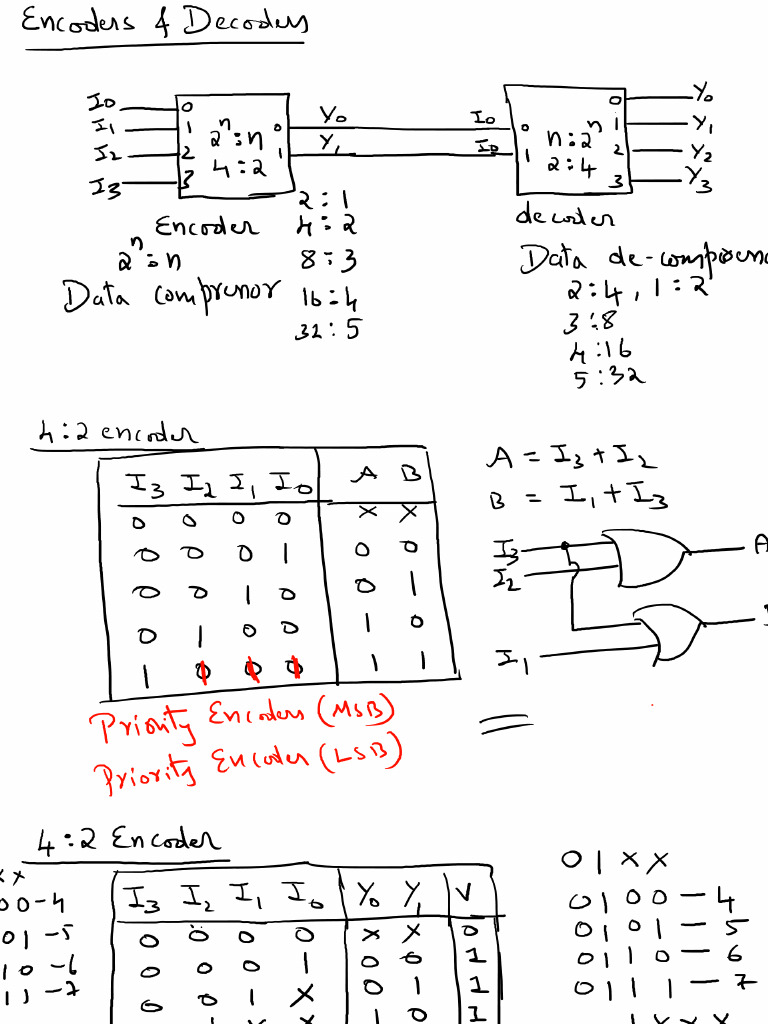 Encoders & Decoders
I0 0 2^n:n 0 Y0 I0 0 n:2^n 0 Y0
I1 1 4:2 1 Y1 I0 1 2:4 1 Y1
I2 2 2 Y2
I3 3 3 Y3
Encoder
2^n:n
Data
2 : 1
4 : 2
8 : 3
16 : 4
32 : 5
decoder
Data
2:4, 1:2
3:8
4:16
5:32
4:2 encoder
I3 I2 I1 I0 A B
0 0 0 0 X X
0 0 0 1 0 0
0 0 1 0 0 1
0 1 0 0 1 0
1 0 0 0 1 1
A = I3 + I2
B = I1 + I3
I3 A
I2
I1
Priority Encoders (MSB)
Priority Encoder (LSB)
4:2 Encoder
I3 I2 I1 I0 Y0 Y1 V
0 0 0 0 X X 0
0 0 0 1 0 0 1
0 0 1 X 0 1 1
X X 1 0 1
XX
00-4
01-5
10-6
11-7
01XX
0100-4
0101-5
0110-6
0111-7
1XXX